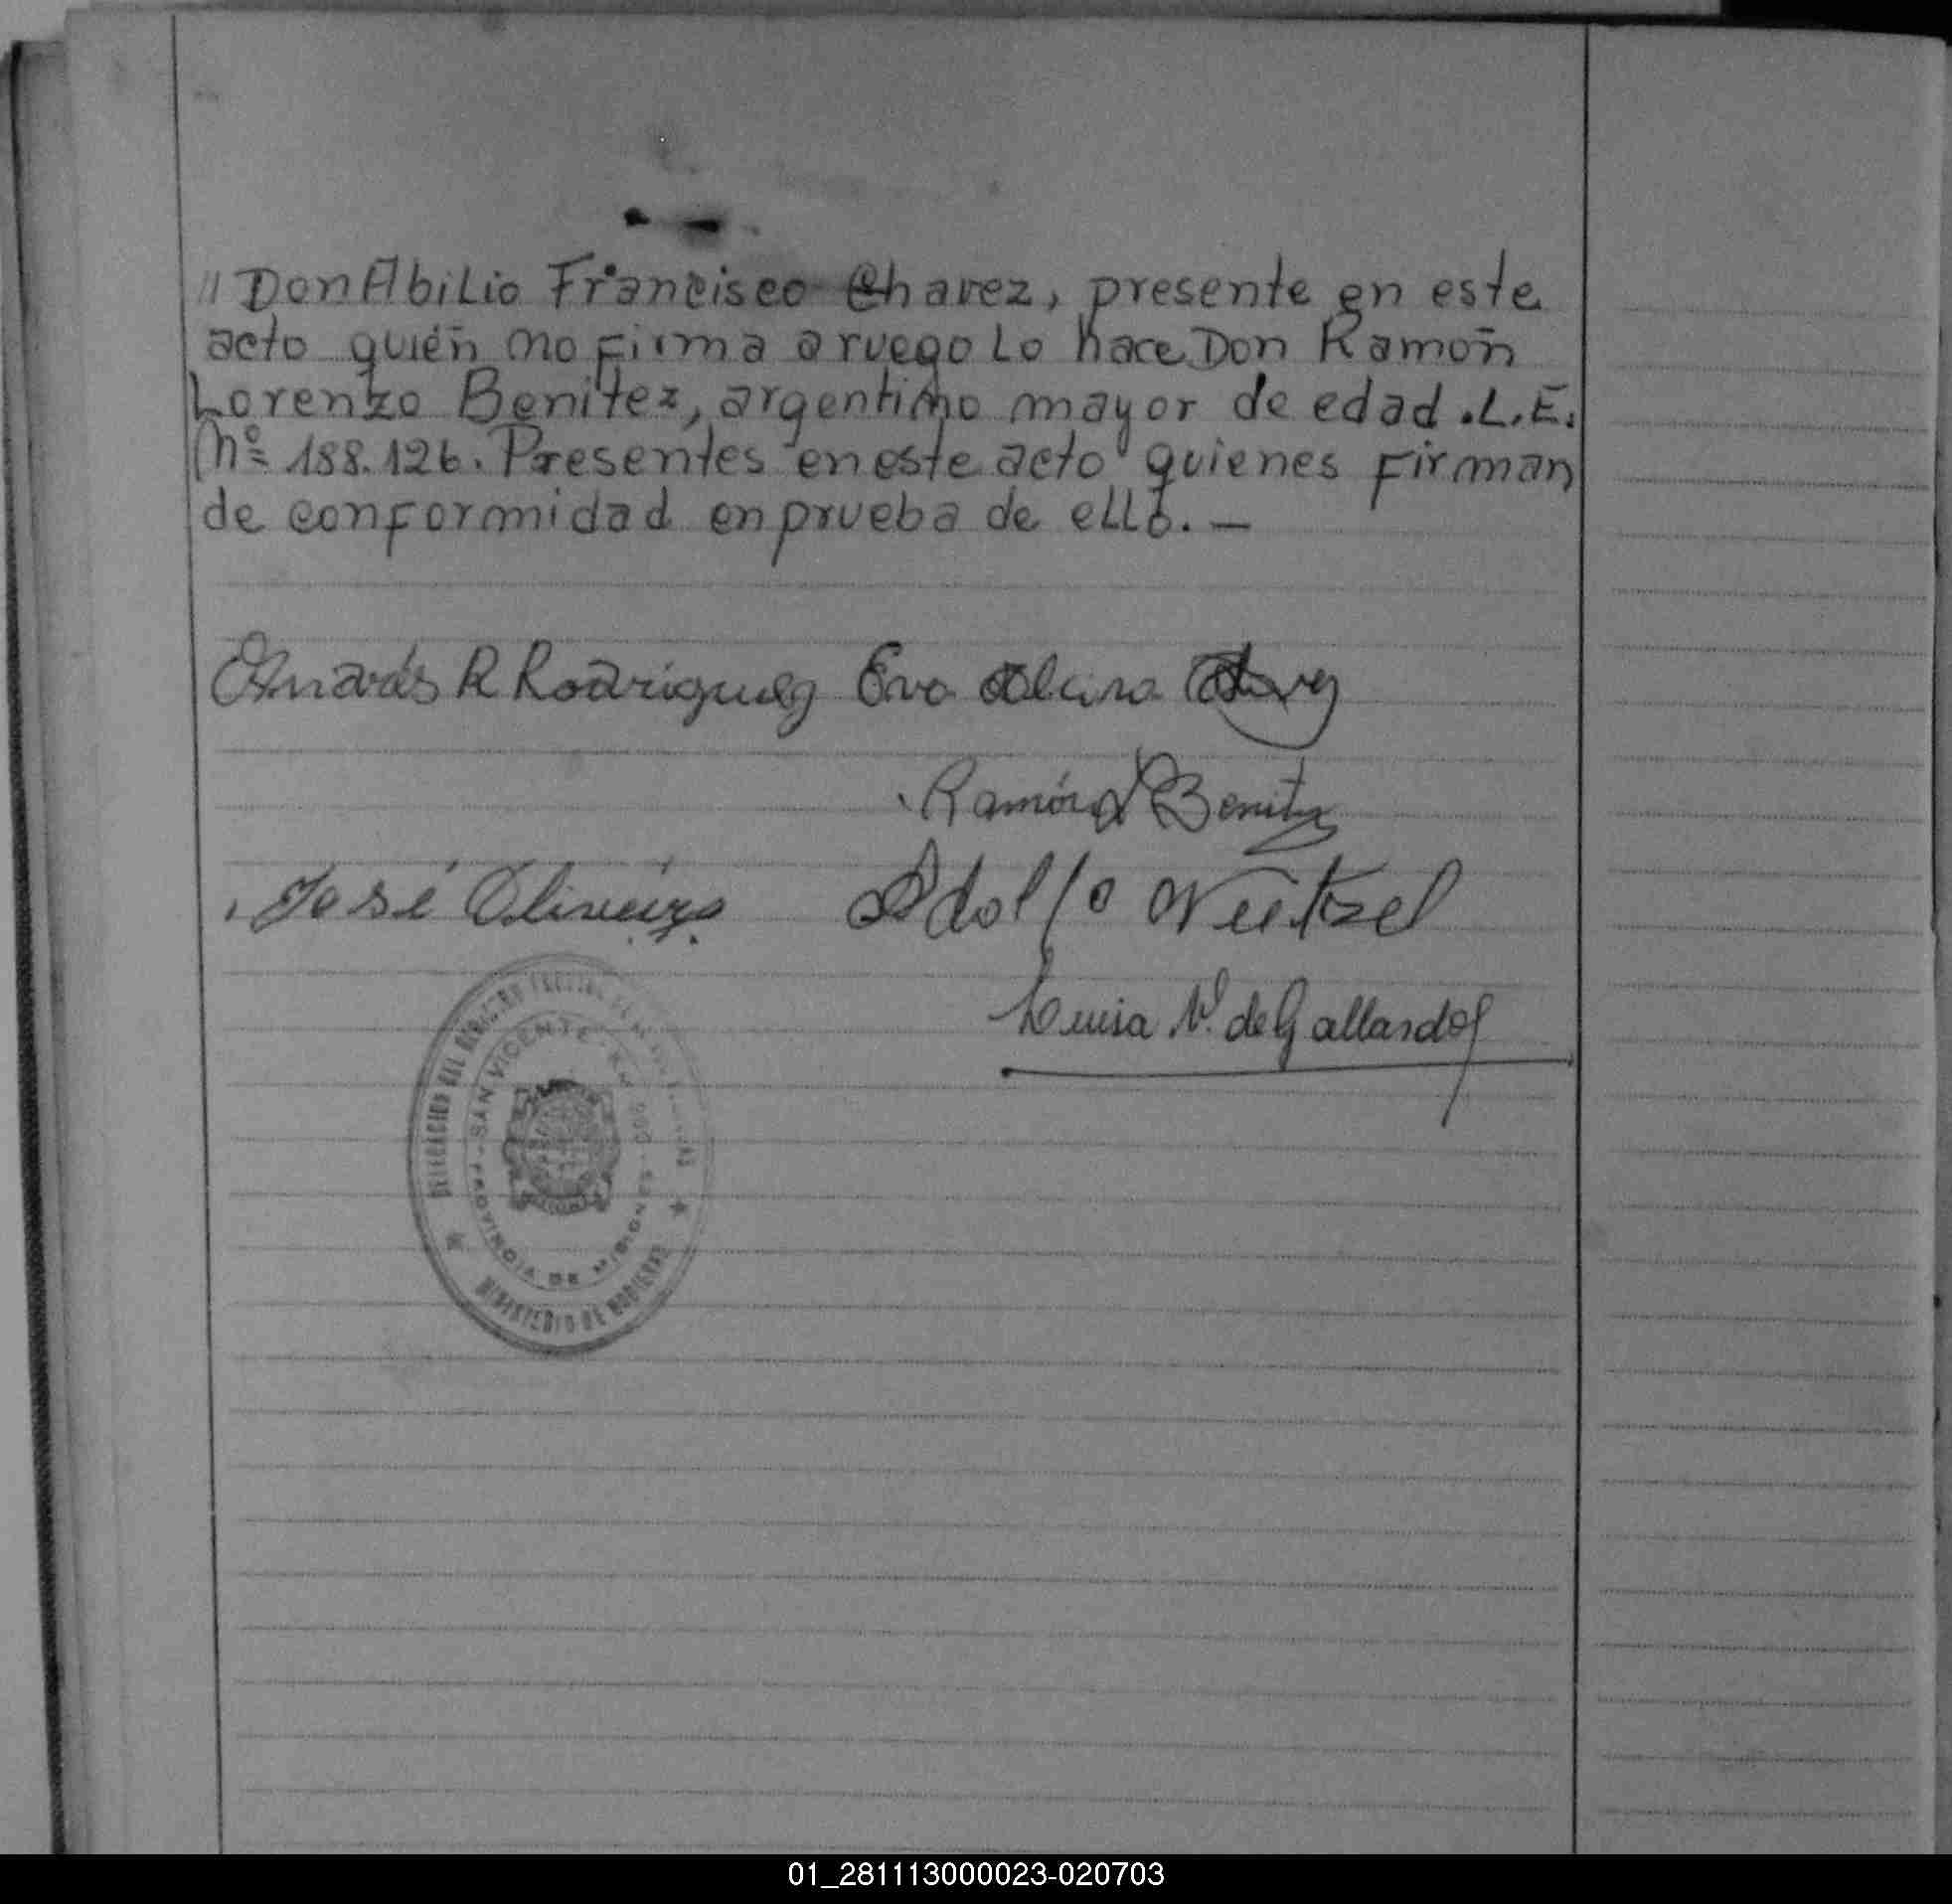 " Don Abilio Francisco Chavez, presente en este
acto quién no firma a ruego lo hace Don Ramón
Lorenzo Benitez, argentino mayor de edad. L.E.
Nº 188.126. Presentes en este acto quienes firman
de conformidad en prueba de ello. —
R Rodriguez Eva
Ramón Benitez
José Oliveira Adolfo
Luisa V. de Gallardo
SAN VICENTE
PROVINCIA DE MISIONES
MINISTERIO DE GOBIERNO
01_281113000023-020703